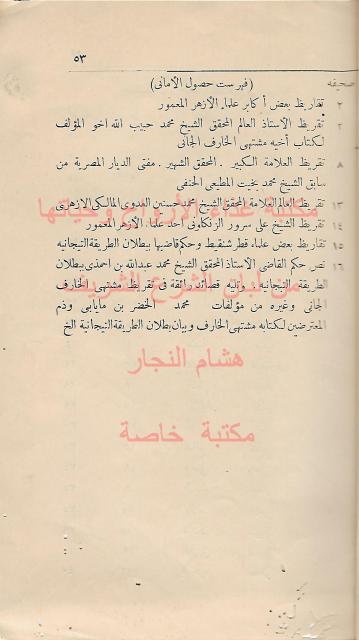 ٥٣
صحيفه (فهرست حصول الأماني)
٢ تقاريظ بعض أكابر علماء الأزهر المعمور
٢ تقريظ الأستاذ العالم المحقق الشيخ محمد حبيب الله اخو المؤلف
لكتاب أخيه مشتهى الخارف الجانى
٨ تقريظ العلامة الكبير . المحقق الشهير . مفتى الديار المصرية من
سابق الشيخ محمد بخيت المطيعى الحنفي
١٣ تقريظ العالم العلامة المحقق الشيخ محمد حسنين العدوى المالكى الازهرى
١٤ تقريظ الشيخ على سرور الزنكلونى احد علماء الازهر المعمور
١٥ تقريظ بعض علماء قطر شنقيط وحكم قاضيها ببطلان الطريقة التيجانيه
١٦ نص حكم القاضى الأستاذ المحقق الشيخ محمد عبد الله بن احمذى ببطلان
الطريقة التيجانية . وتليه قصائد رائقة فى تقريظ مشتهى الخارف
الجانى وغيره من مؤلفات محمد الخضر بن مايابى وذم
المعترضين لكتابه مشتهى الخارف وبيان بطلان الطريقة التيجانية الخ
مكتبة غذاء الأرواح وحياتها
من بيان الشرع الشريف
هشام النجار
مكتبة خاصة